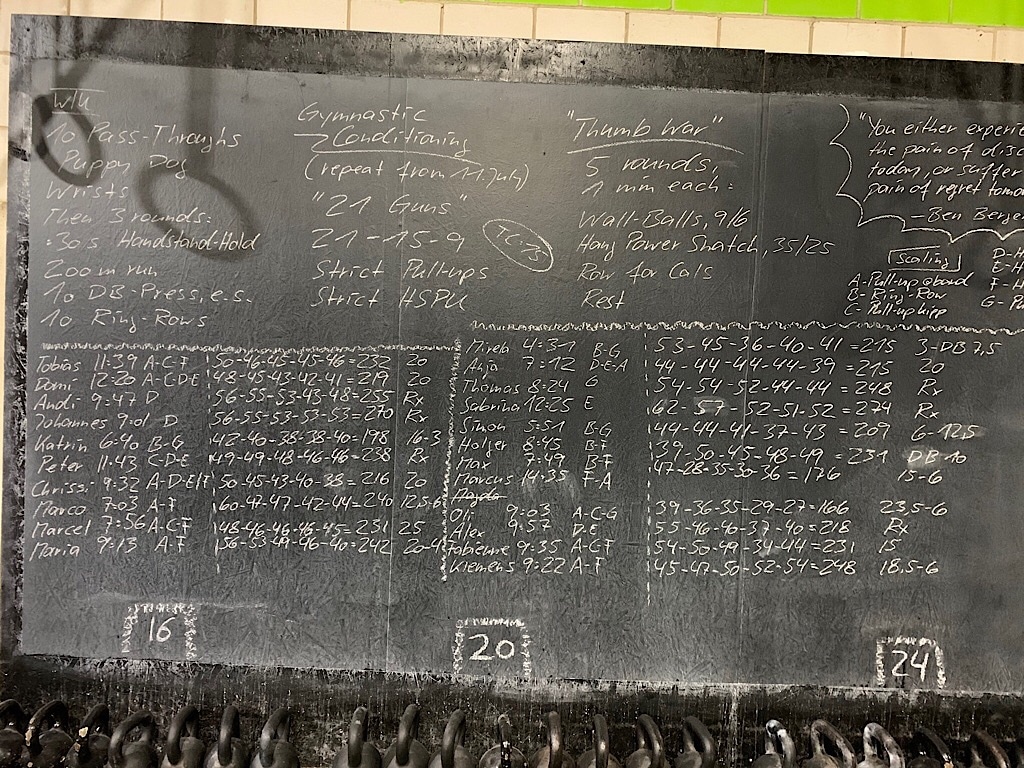 W/U
10 Pass-Throughs
Puppy Dog
Wrists
Then 3 rounds:
:30s Handstand-Hold
200m run
10 DB-Press, e.s.
10 Ring-Rows
Gymnastic
Conditioning
(repeat from 11. July)
"21 Guns"
21-15-9
TC:15
Strict Pull-ups
Strict HSPU
"Thumb War"
5 rounds,
1 min each:
Wall-Balls, 9/6
Hang Power Snatch, 35/25
Row for Cals
Rest
"You either experie
the pain of disc
today, or suffer
pain of regret tomor
- Ben Berger
Scaling
A-Pull-up aband
B-Ring-Row
C-Pull-up kipp
D-H
E-H
F-H
G-Pu
Tobias 11:39 A-C-F 50-46-45-45-46=232 20
Domi 12:20 A-C-D-E 48-45-43-42-41=219 20
Andi 9:47 D 56-55-53-43-48=255 Rx
Johannes 9:01 D 56-55-53-53-53=270 Rx
Katrin 6:40 B-G 42-40-38-38-40=198 16-3
Peter 11:43 C-D-E 49-49-48-46-46=238 Rx
Chrissi 9:32 A-D-E/F 50-45-43-40-38=216 20
Marco 7:03 A-F 60-47-47-42-44=240 12,5-6
Marcel 7:56 A-C-F 48-46-46-46-45=231 25
Maria 9:13 A-F 56-53-49-46-40=242 20-4
Mirela 4:31 B-G 53-45-36-40-41=215 3-DB 7,5
Anja 7:12 D-E-A 44-44-44-44-39=215 20
Thomas 8:24 G 54-54-52-44-44=248 Rx
Sabrina 12:25 E 62-57-52-51-52=274 Rx
Simon 5:51 B-G 44-44-41-37-43=209 6-12,5
Holger 8:45 B-F 39-50-45-48-49=231 DB 10
Max 7:49 B-F 47-28-35-30-36=176 15-6
Marcus 14:35 F-A
Oli 9:03 A-C-G 39-36-35-29-27=166 23,5-6
Alex 9:57 D-E 55-46-40-37-40=218 Rx
Fabienne 9:35 A-C-F 54-50-49-34-44=231 15
Klemens 9:22 A-F 45-47-50-52-54=248 18,5-6
16
20
24